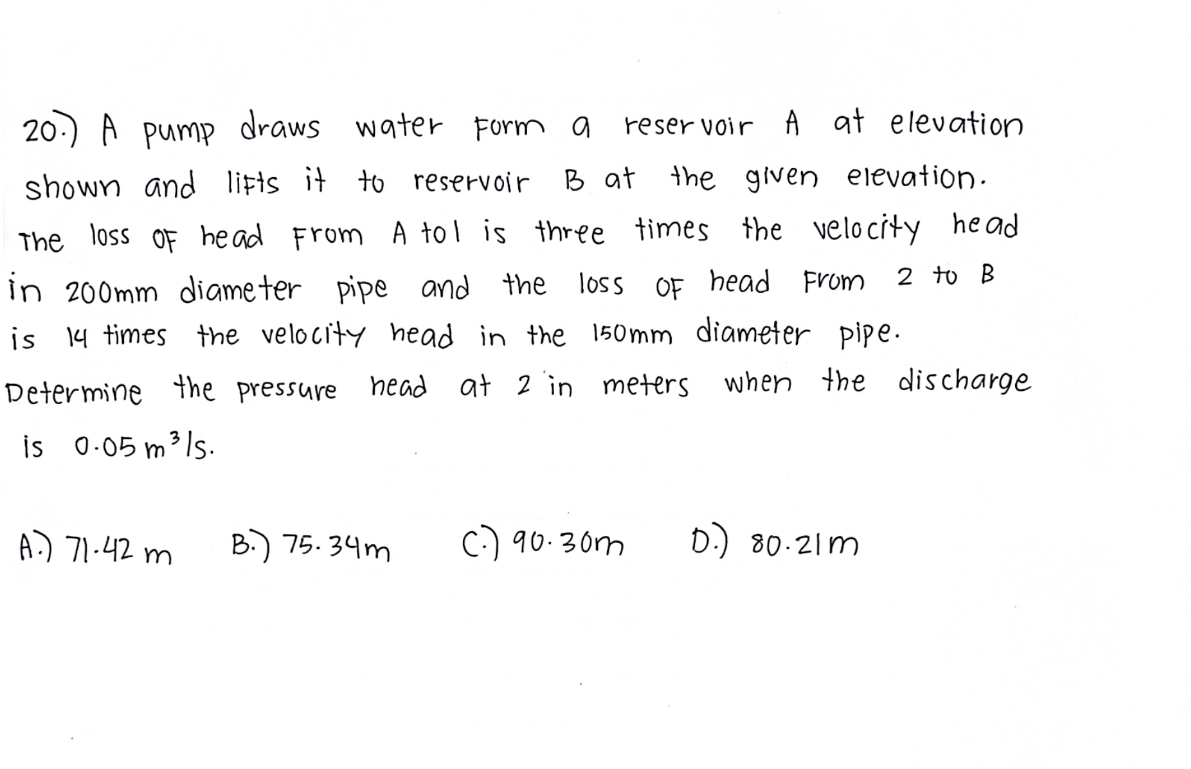 20.) A pump draws water Form a reservoir A at elevation
shown and lifts it to reservoir B at the given elevation.
The loss OF head From A to 1 is three times the velocity head
in 200mm diameter pipe and the loss OF head From 2 to B
is 14 times the velocity head in the 150mm diameter pipe.
Determine the pressure head at 2 in meters when the discharge
is 0.05 m³/s.
A.) 71.42 m B.) 75.34m C.) 90.30m D.) 80.21m